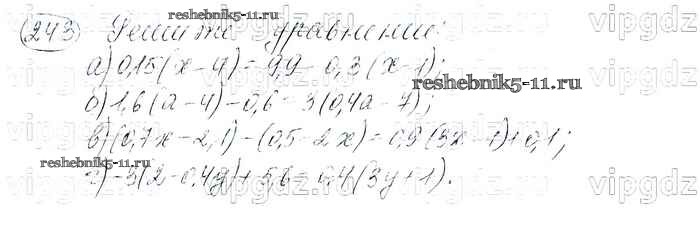 reshebnik5-11.ru
243 Решите уравнение:
а) 0,15(x-4) = 9,9 - 0,3(x-1);
reshebnik5-11.ru
б) 1,6(a-4) - 0,6 = 3(0,4a-7);
в) (0,7x - 2,1) - (0,5 - 2x) = 0,9(3x-1) + 0,1;
reshebnik5-11.ru
г) -3(2-0,4y) + 5,6 = 0,4(3y+1).
vipgdz vipgdz vipgdz vipgdz